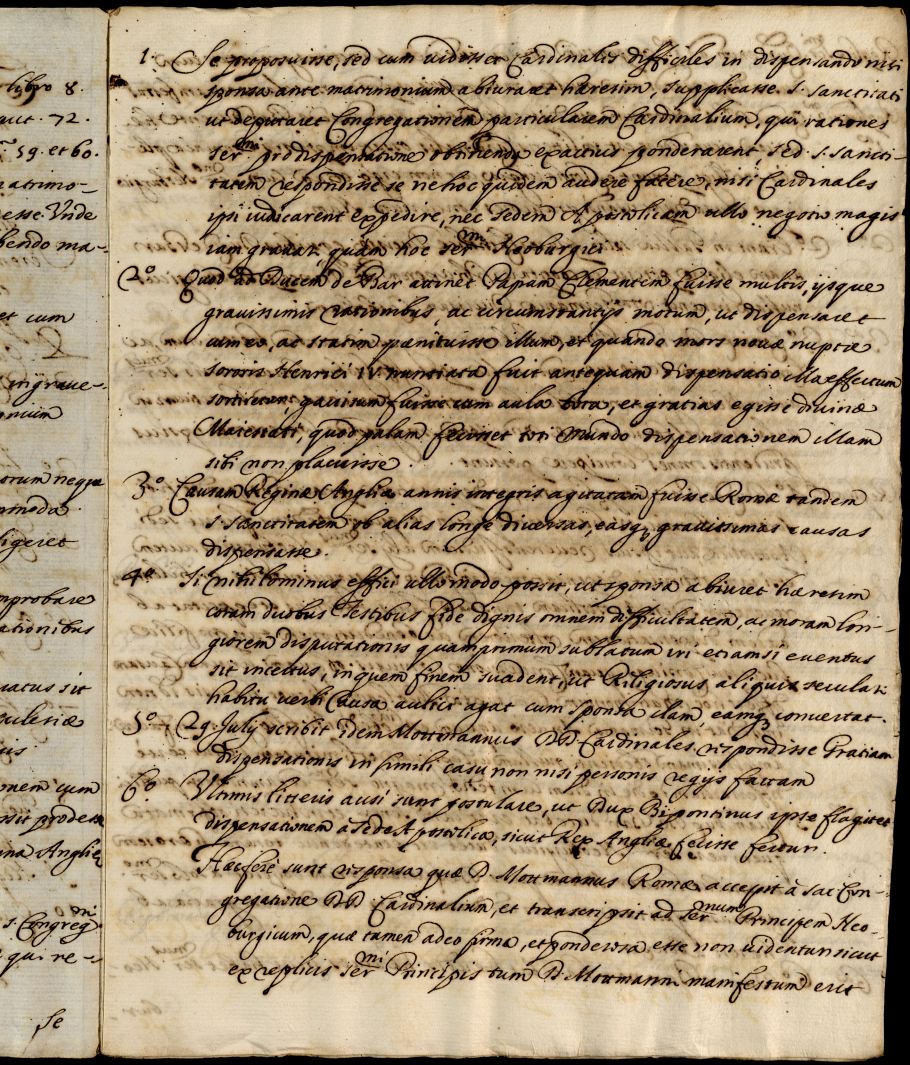 libro 8.
aut. 72.
59. et 60.
matrimo-
esse. Unde
bendo ma-
et cum
ingrave-
orum neque
mmoda.
ligeret
mprobare
ationibus
uatus sit
culesiæ
onem cum
prodesse
ina Angliæ
s. Congreg.ni
qui re-
Se
1. Se proposuisse, sed cum uidisset Cardinales difficiles in dispensando nisi
sponsa ante matrimonium abiuraret hæresim, supplicasse S. Sanctitati
ut deputaret Congregationem particularem Cardinalium, qui rationes
Ser.mi pro dispensatione obtinenda exactius ponderarent, sed S. Sancti-
tatem respondisse se ne hoc quidem audere facere, nisi Cardinales
ipsi iudicarent expedire, nec Sedem Apostolicam ullo negotio magis
iam gravari, quam hoc Ser.mi Neoburgici
2.º Quod ad Ducem de Bar attinet Papam Clementem fuisse multis, ijsque
gravissimis rationibus, ac circumstantijs motum, ut dispensaret
cum eo, ac statim pænituisse illum, et quando mors novæ nuptæ
sororis Henrici IV. nuntiata fuit antequam dispensatio illa effectum
sortiretur, gavisum fuisse cum aula tota, et gratias egisse divinæ
Maiestati, quod palam fecisset toti Mundo dispensationem illam
sibi non placuisse.
3.º Causam Reginæ Angliæ annis integris agitatam fuisse Romæ tandem
S. Sanctitatem ob alias longe diversas, easq; gravissimas causas
dispensasse.
4.º Si nihilominus effici ullo modo possit, ut sponsa abiuret hæresim
coram duobus Testibus fide dignis omnem difficultatem, ac moram lon-
giorem disputationis quamprimum sublatum iri etiamsi eventus
sit incertus, in quem finem suadent, ut Religiosus aliquis seculari
habitu verbi Causa aulici agat cum sponsa clam, eamq; convertat.
5.º 29. Julij scribit idem Mottmannus DD. Cardinales respondisse Gratiam
dispensationis in simili casu non nisi personis regijs factam
6.º Ultimis litteris ausi sunt postulare, ut Dux Bipontinus ipse flagitet
dispensationem a Sede Apostolica, sicut Rex Angliæ fecisse fertur.
Hæc fere sunt responsa quæ D. Mottmannus Romæ accepit à sac. Con-
gregatione DD. Cardinalium, et transcripsit ad Ser.mum Principem Neo-
burgicum, quæ tamen adeo firma, et ponderosa esse non uidentur sicut
ex replicis Ser.mi Principis tum D. Mottmanni manifestum erit